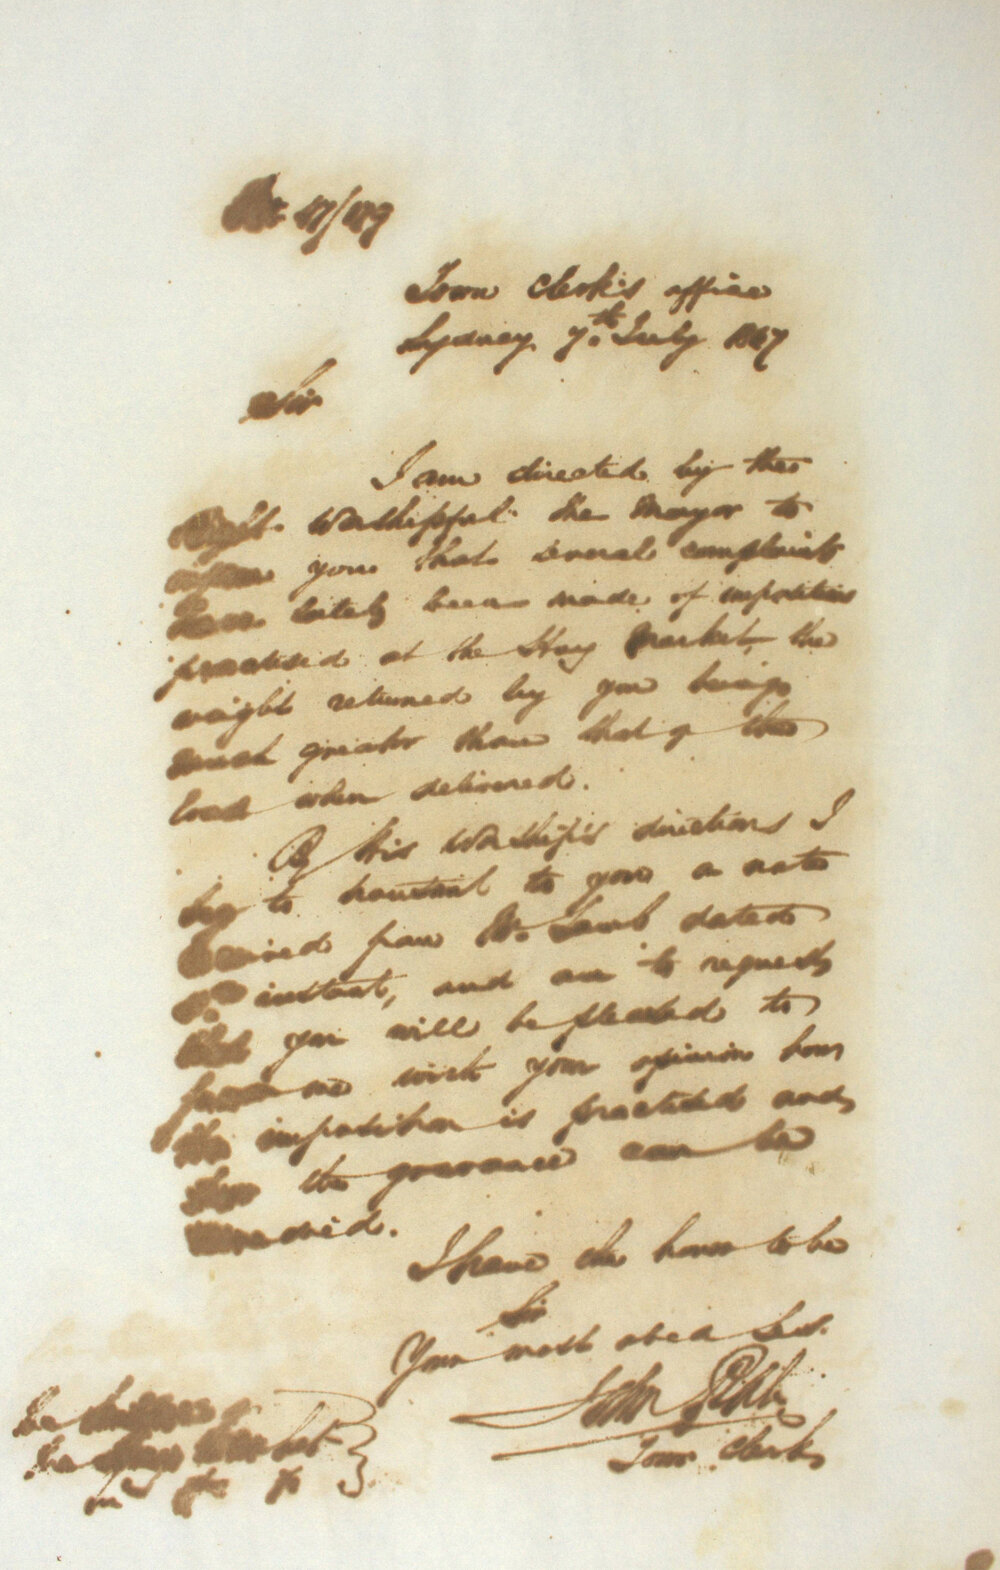 47/179
Town Clerk's office
Sydney 7th July 1847
Sir
I am directed by the
Right Worshipful the Mayor to
inform you that several complaints
have lately been made of impositions
practised at the Hay Market, the
weight returned by you being
much greater than that of the
load when delivered.
By His Worship's directions I
beg to transmit to you a note
received from Mr. Lamb dated
instant, and am to request
that you will be pleased to
favor me with your opinion how
the imposition is practised and
how the grievance can be
remedied.
I have the honor to be
Sir
Your most obed Ser.
John Rish
Town Clerk
The of
the Hay Market